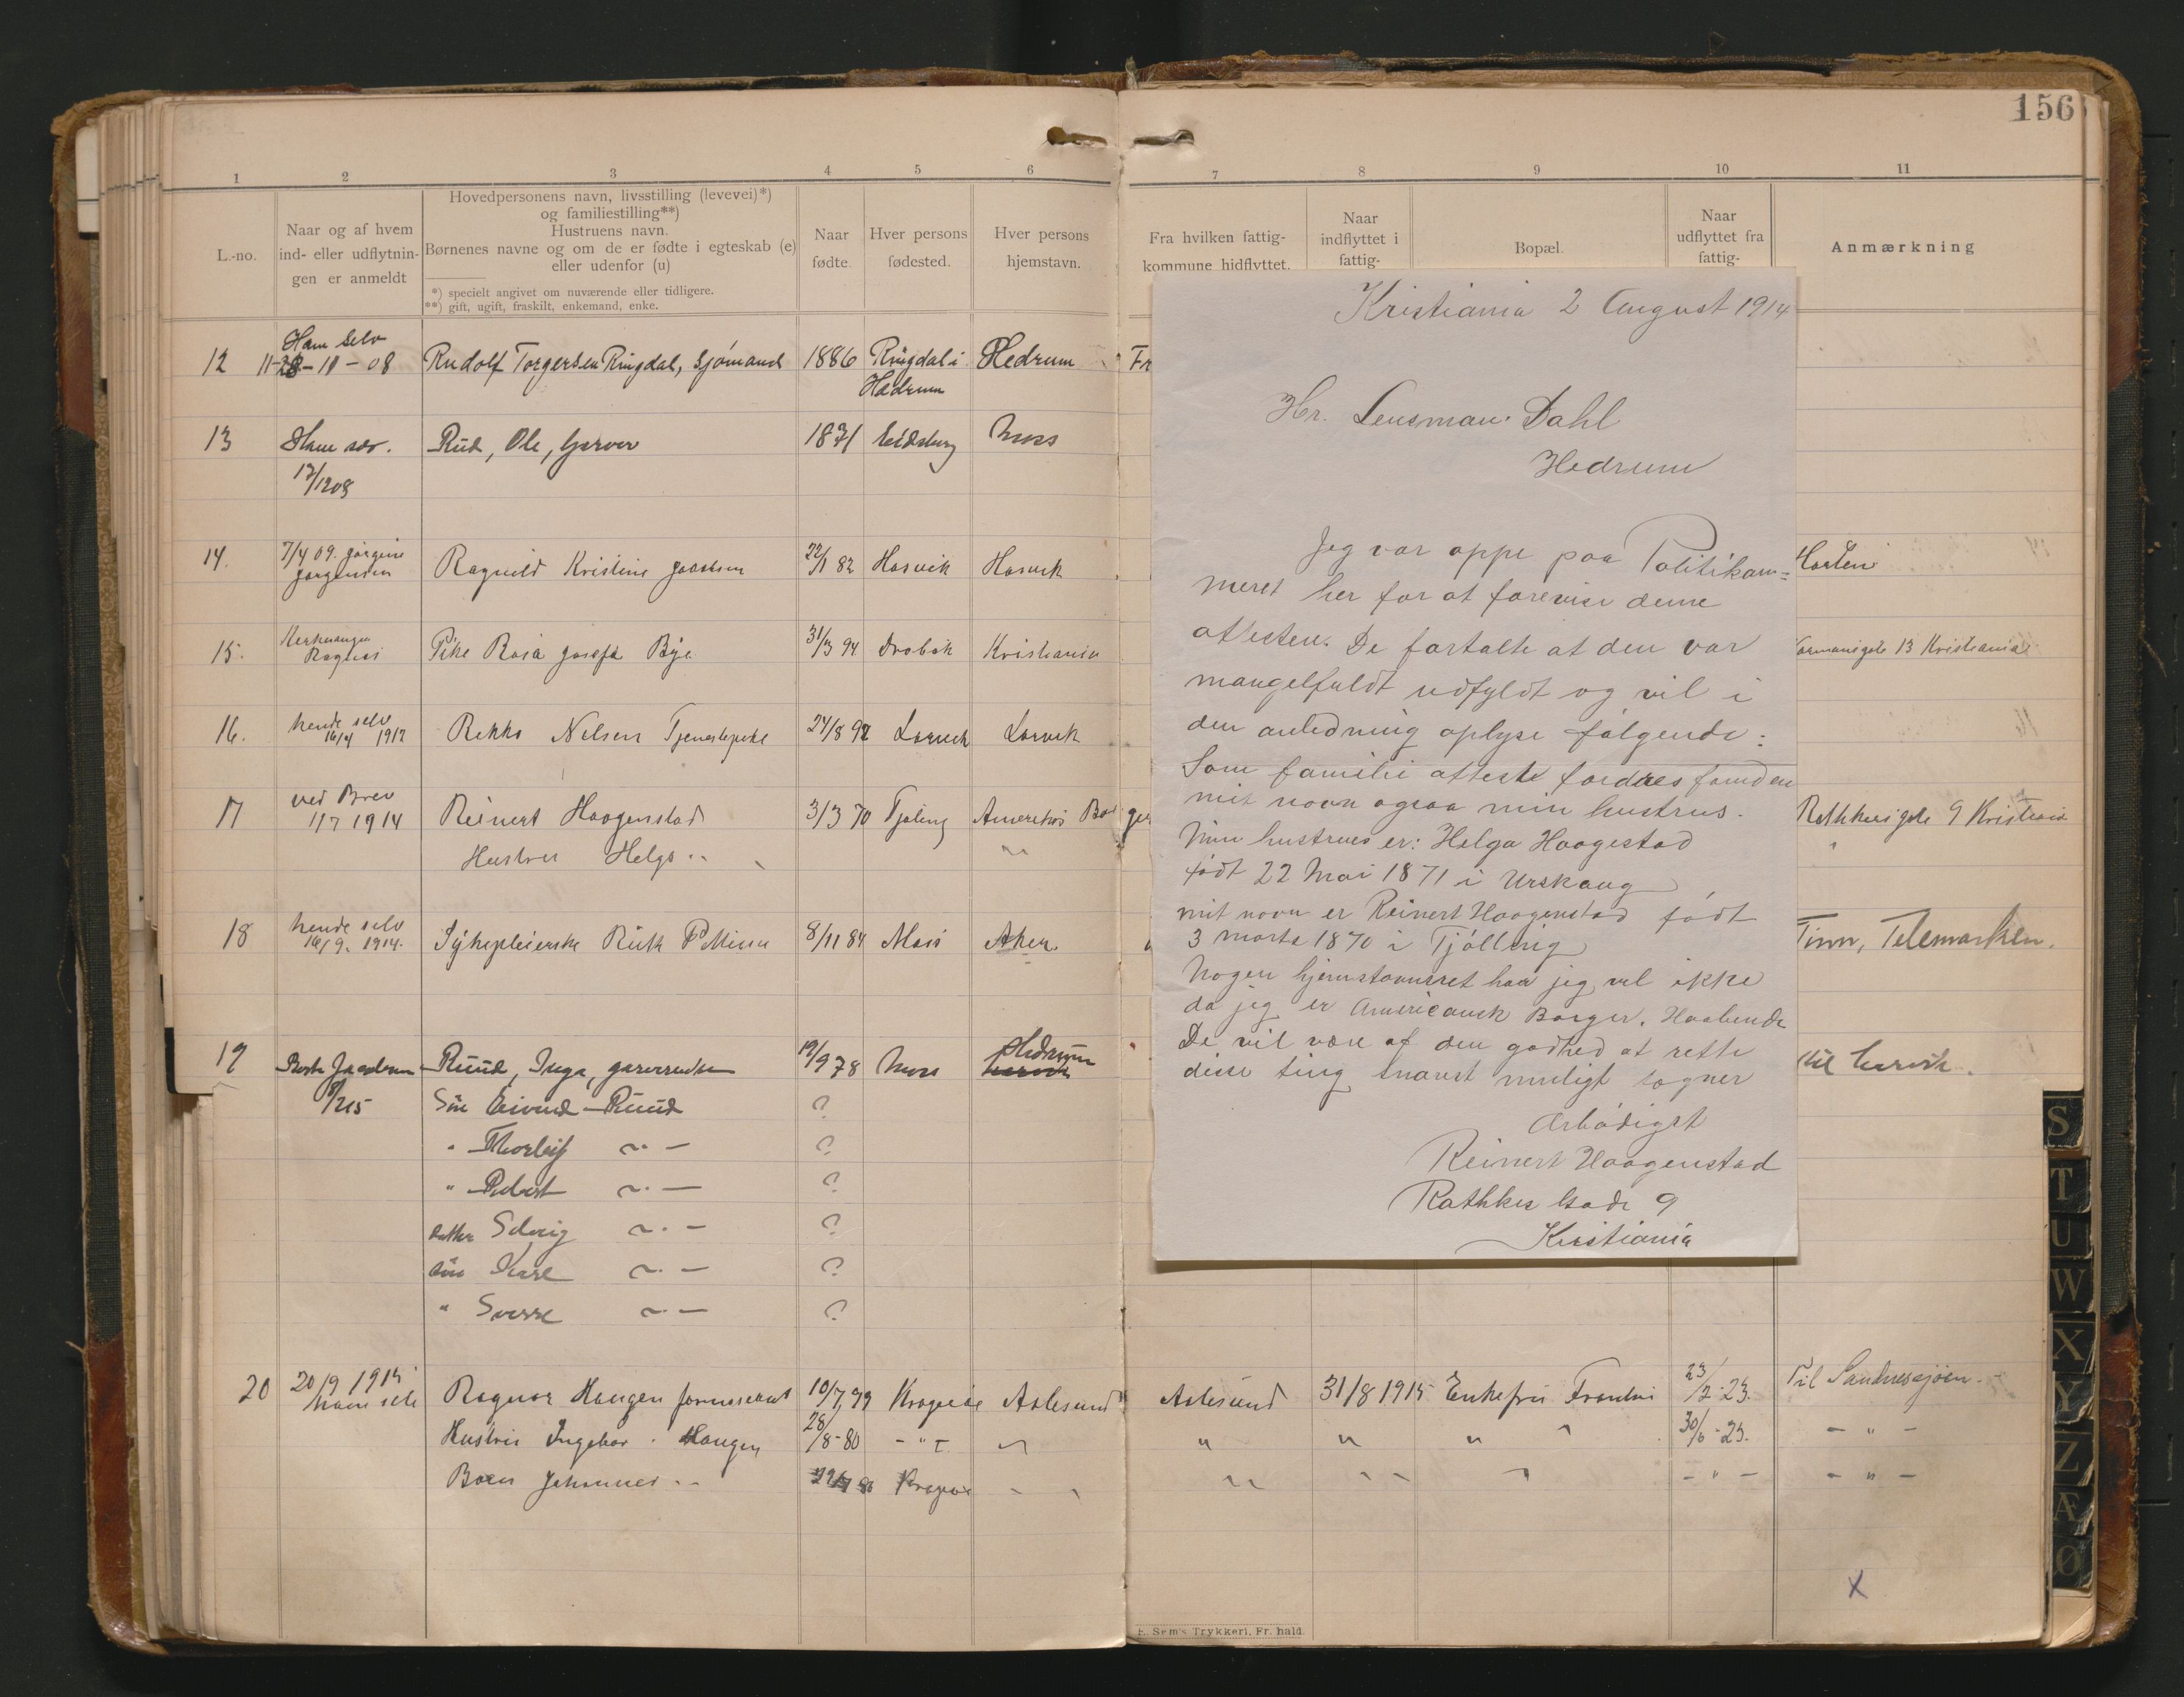 156
1 2 3 4 5 6 7 8 9 10 11
L.-no.
Naar og af hvem
ind- eller udflytnin-
gen er anmeldt
Hovedpersonens navn, livsstilling (levevei)*)
og familiestilling**)
Hustruens navn.
Børnenes navne og om de er fødte i egteskab (e)
eller udenfor (u)
*) specielt angivet om nuværende eller tidligere.
**) gift, ugift, fraskilt, enkemand, enke.
Naar
fødte.
Hver persons
fødested.
Hver persons
hjemstavn.
Fra hvilken fattig-
kommune hidflyttet.
Naar
indflyttet i
fattig-
Bopæl.
Naar
udflyttet fra
fattig-
Anmærkning
Ham selv
12 11-28-11-08 Rudolf Torgersen Ringdal, Sjømand 1886 Ringdal i Hedrum Fr
Hedrum
13 Ham selv. Rud, Ole, Garver 1871 Eidsberg Moss
12/1208
14. 7/4 09. Jørgine
Jørgensen Ragnild Kristine 22/1 82 Hasvik Hasvik Horten
15. Pike Rosa Josefa Bye 31/3 94 Drøbak Kristiania 13 Kristiania
16. hende selv
16/4 1912 Nilsen Tjenestepike 24/8 92 Larvik Larvik
17 ved Brev
1/7 1914 Reinert Haagenstad 3/3 70 Tjøling Amerikas Borger Rathkesgate 9 Kristiania
Hustru Helga
18 hende selv
16/9. 1914. Sykepleierske Ruth 8/11 84 Moss Aker. Tinn, Telemarken.
19 Ruud, Inga, 19/9 78 Moss Hedrum til Larvik.
8/215 Søn Eivind Ruud ?
" Thorleif ~ — ?
" Robert ~ — ?
datter Solveig ~ — ?
søn Kåre ~ — ?
" Sverre ~ — ?
20 20/9 1915
ham selv Ragnar Haugen 10/7 79 Kragerø Aalesund Aalesund 31/8 1915 Enkefru 23/2-23. Til Sandnessjøen.
Hustru Ingebor Haugen 28/8-80 - " - " " " " 30/6-23. - " -
Barn Johannes Kragerø - " - - " -
Kristiania 2 August 1914
Hr. Lensman Dahl
Hedrum
Jeg var oppe paa Politikam=
meret her for at forevise denne
attesten. De fortalte at den var
mangelfuldt udfyldt og vil i
den anledning oplyse følgende:
Som familie atteste fordres foruden
mit navn ogsaa min hustrus.
Min hustrues er: Helga Haagestad
født 22 Mai 1871 i Urskaug
mit navn er Reinert Haagenstad født
3 marts 1870 i Tjølling
Nogen hjemstavnsret har jeg vel ikke
da jeg er Americansk Borger. Haabende
De vil være af den godhed at rette
disse ting snarest muligt tegner
Ærbødigst
Reinert Haagenstad
Rathkes Gade 9
Kristiania
S
T
U
W
X
Y
Z
Æ
Ø
X
E. Sem's Trykkeri, Fr. hald.